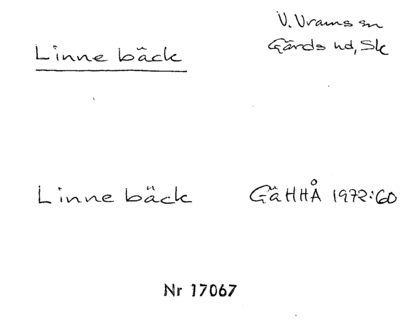 Linne bäck
V. Vrams sn
Gärds hd, Sk
Linne bäck
GäHHÅ 1972:60
Nr 17067